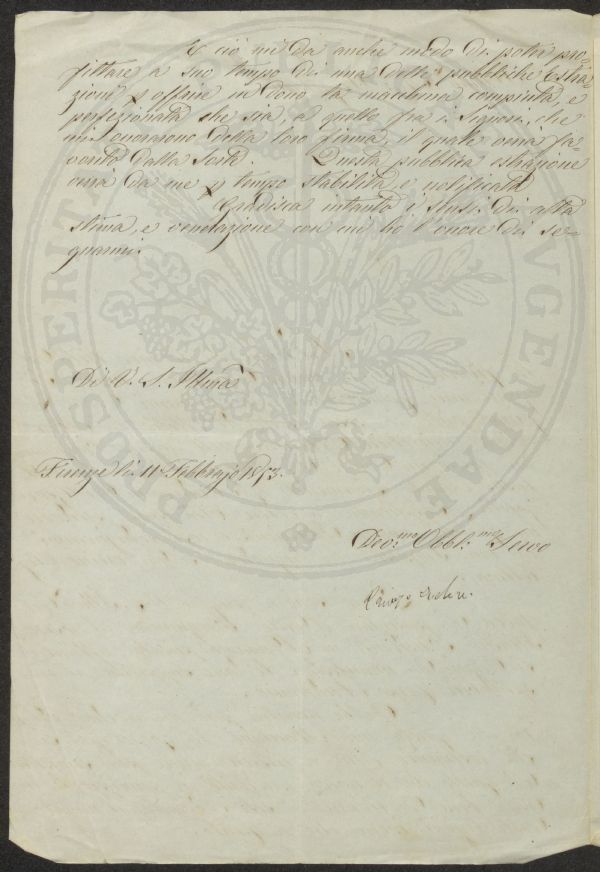 E ciò mi dà anche modo di poter pro=
fittare a suo tempo di una delle pubbliche Estra
zioni p offrire in dono la macchina compiuta, e
perfezionata che sia, a quello fra i Signori, che
mi onorarono della loro firma, il quale verrà fa=
vorito dalla Sorte. Questa pubblica estrazione
verrà da me p tempo stabilita, e notificata
Gradisca intanto i sensi di alta
stima, e venerazione con cui ho l'onore di se=
gnarmi.
Di V. S. Illma
Firenze li 11 Febbrajo 1853.
Dev.mo Obbl.mo Servo
PROSPERITATI AUGENDAE